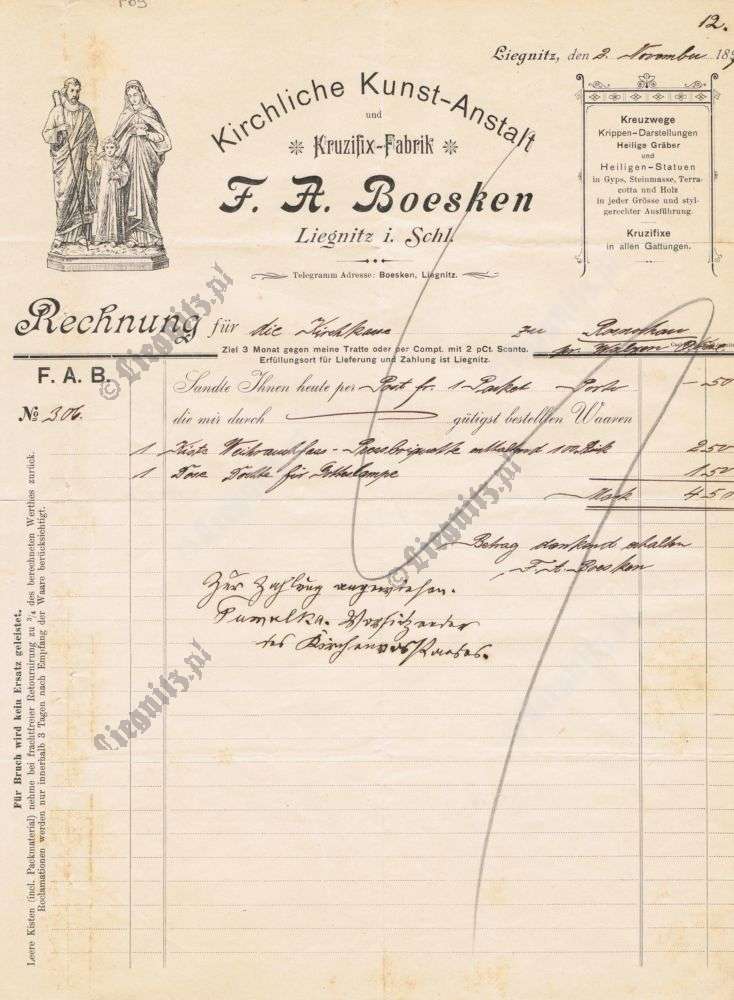 12.
Liegnitz, den 2. November 189
Kirchliche Kunst-Anstalt
und
Kruzifix-Fabrik
F. A. Boesken
Liegnitz i. Schl.
Telegramm Adresse: Boesken, Liegnitz.
Kreuzwege
Krippen-Darstellungen
Heilige Gräber
und
Heiligen-Statuen
in Gyps, Steinmasse, Terra-
cotta und Holz
in jeder Grösse und styl-
gerechter Ausführung.
Kruzifixe
in allen Gattungen.
Rechnung für die Kirchkasse zu
Ziel 3 Monat gegen meine Tratte oder per Compt. mit 2 pCt. Sconto.
Erfüllungsort für Lieferung und Zahlung ist Liegnitz.
F. A. B.
Sandte Ihnen heute per Post fr. 1 Packet Porto -.50
No 306.
die mir durch gütigst bestellten Waaren
1 Kiste enthaltend 100 Stück 2.50
1 Dose Dochte für 1.50
Mark 4.50
Betrag dankend erhalten
F. A. Boesken
Zur Zahlung angewiesen.
Pawelka. Vorsitzender
des Kirchenvorstandes.
Für Bruch wird kein Ersatz geleistet.
Leere Kisten (incl. Packmaterial) nehme bei frachtfreier Retournirung zu ¾ des berechneten Werthes zurück.
Reclamationen werden nur innerhalb 3 Tagen nach Empfang der Waare berücksichtigt.
© Liegnitz.pl
© Liegnitz.pl
Liegnitz.pl